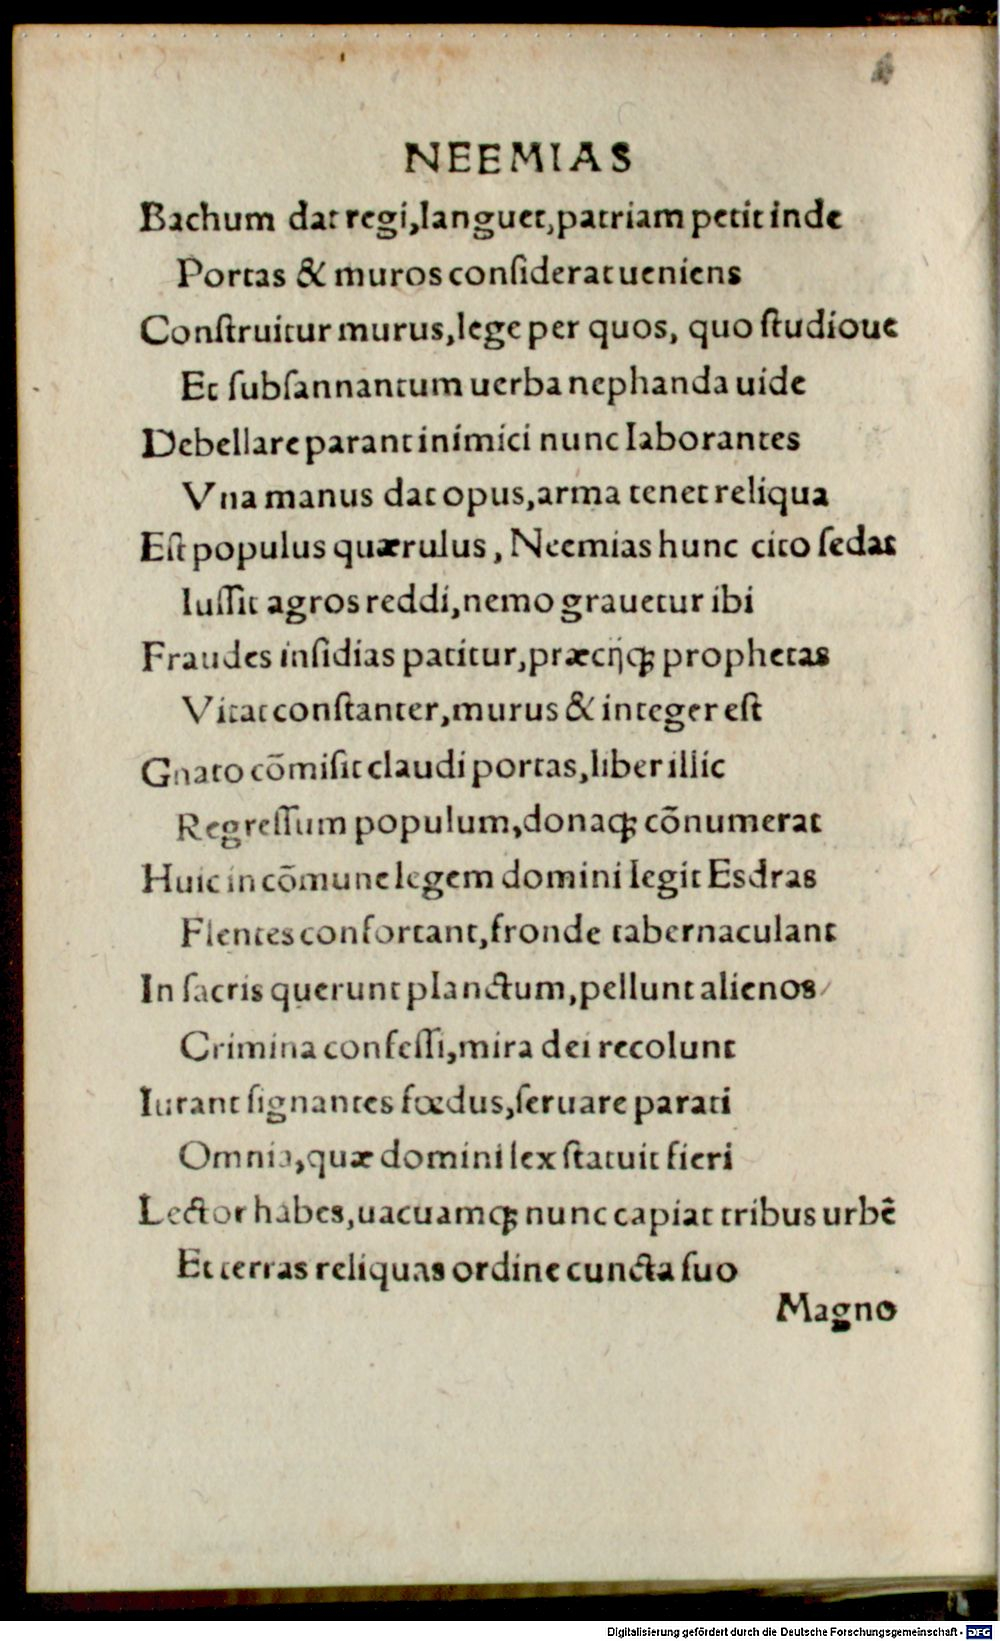 NEEMIAS
Bachum dat regi,languet,patriam petit inde
Portas & muros conſiderat ueniens
Conſtruitur murus,lege per quos, quo ſtudioue
Et ſubſannantum uerba nephanda uide
Debellare parant inimici nunc laborantes
Vna manus dat opus,arma tenet reliqua
Eſt populus quærulus, Neemias hunc cito ſedat
Iuſſit agros reddi,nemo grauetur ibi
Fraudes inſidias patitur,præcijqꝫ prophetas
Vitat conſtanter,murus & integer eſt
Gnato cōmiſit claudi portas,liber illic
Regreſſum populum,donaqꝫ cōnumerat
Huic in cōmune legem domini legit Esdras
Flentes confortant,fronde tabernaculant
In ſacris querunt planctum,pellunt alienos/
Crimina confeſſi,mira dei recolunt
Iurant ſignantes fœdus,ſeruare parati
Omnia,quæ domini lex ſtatuit fieri
Lector habes,uacuamqꝫ nunc capiat tribus urbē
Et terras reliquas ordine cuncta ſuo
Magno
Digitalisierung gefördert durch die Deutsche Forschungsgemeinschaft - DFG